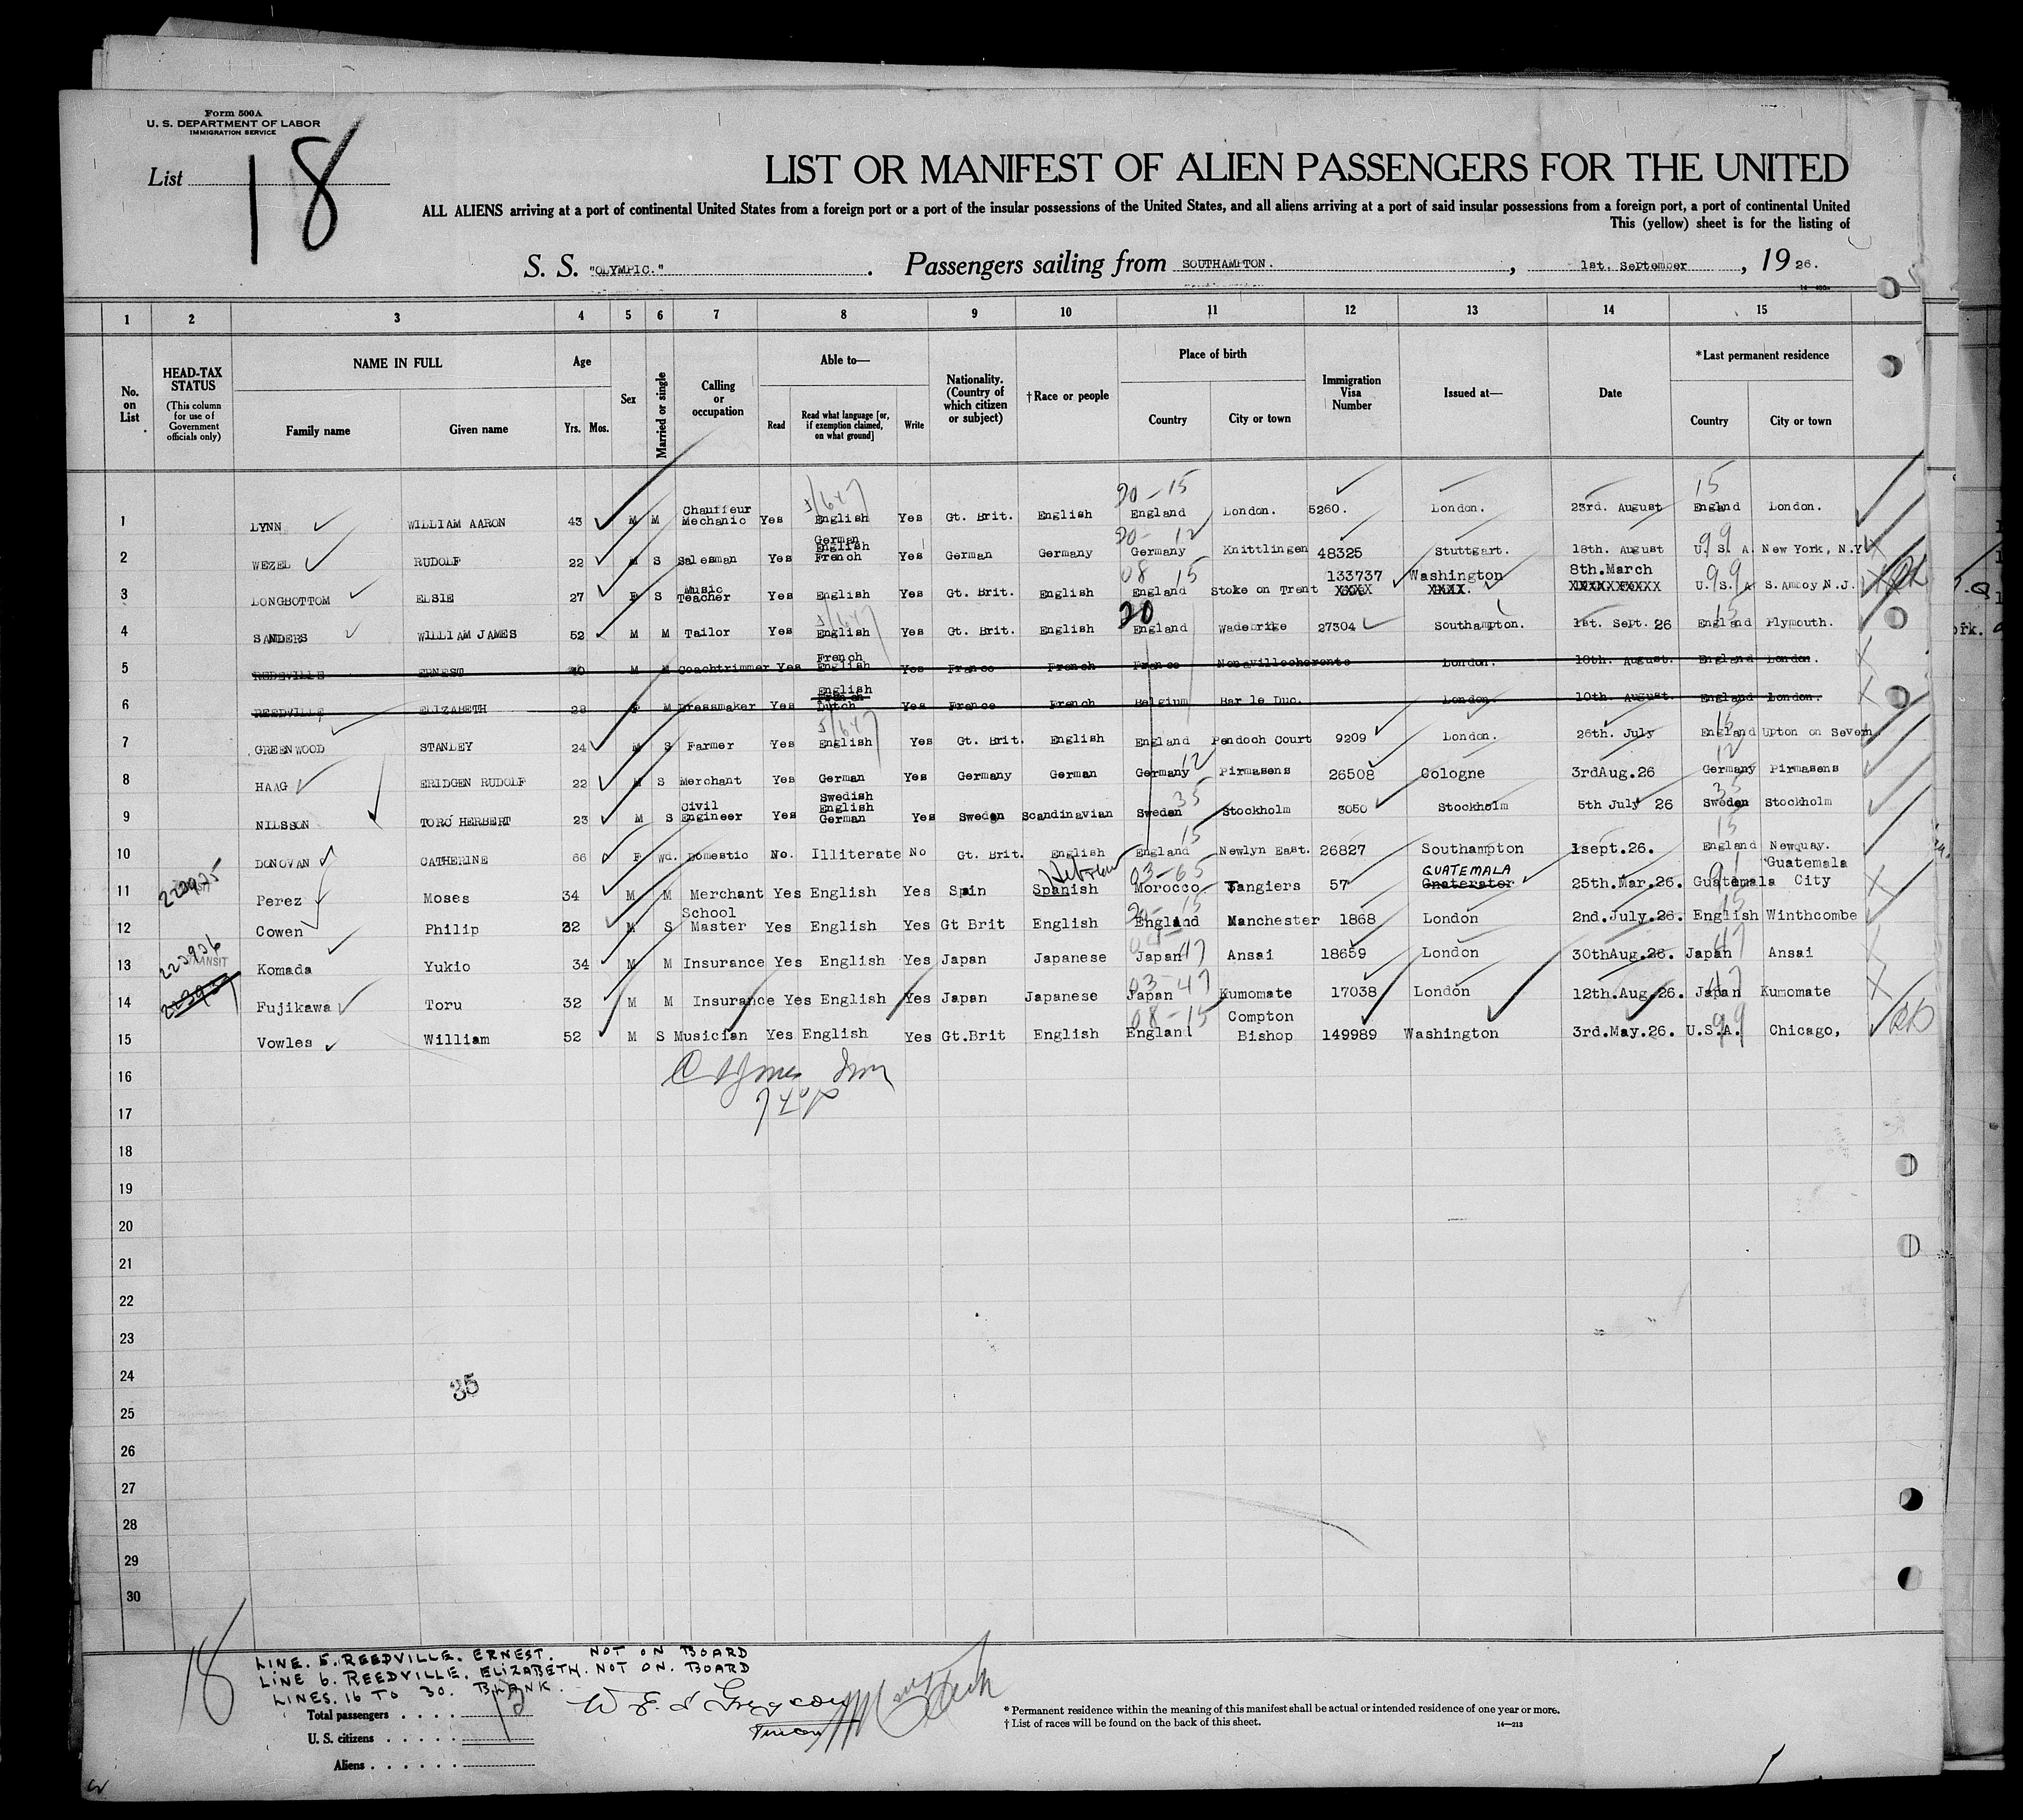 Form 500A
U. S. DEPARTMENT OF LABOR
IMMIGRATION SERVICE
List 18
LIST OR MANIFEST OF ALIEN PASSENGERS FOR THE UNITED
ALL ALIENS arriving at a port of continental United States from a foreign port or a port of the insular possessions of the United States, and all aliens arriving at a port of said insular possessions from a foreign port, a port of continental United
This (yellow) sheet is for the listing of
S. S. "OLYMPIC." . Passengers sailing from SOUTHAMPTON. , 1st. September , 19 26.
1 2 3 4 5 6 7 8 9 10 11 12 13 14 15
No. on List
HEAD-TAX STATUS (This column for use of Government officials only)
NAME IN FULL
Family name Given name
Age
Yrs. Mos.
Sex
Married or single
Calling or occupation
Able to—
Read Read what language [or, if exemption claimed, on what ground] Write
Nationality. (Country of which citizen or subject)
†Race or people
Place of birth
Country City or town
Immigration Visa Number
Issued at—
Date
*Last permanent residence
Country City or town
1 LYNN WILLIAM AARON 43 M M Chauffeur Mechanic Yes English Yes Gt. Brit. English 20-15 England London. 5260. London. 23rd. August 15 England London.
2 WEZEL RUDOLF 22 M S Salesman Yes German English French Yes German Germany 20-12 Germany Knittlingen 48325 Stuttgart. 18th. August 99 U. S. A. New York, N.Y.
3 LONGBOTTOM ELSIE 27 F S Music Teacher Yes English Yes Gt. Brit. English 08 15 England Stoke on Trent 133737 XXXX Washington XXXX. 8th.March 99 U. S. A S. Amboy N.J.
4 SANDERS WILLIAM JAMES 52 M M Tailor Yes English Yes Gt. Brit. English 20 England Wadebrige 27304 Southampton. 1st. Sept. 26 15 England Plymouth.
5 REDEVILLE ERNEST 40 M M Coachtrimmer Yes French English Yes France French France London. 10th. August. England London.
6 REEDVILLE ELIZABETH 28 F M Dressmaker Yes English French Dutch Yes France French Belgium Bar le Duc. London. 10th. August. England London.
7 GREENWOOD STANLEY 24 M S Farmer Yes English Yes Gt. Brit. English England Pendoch Court 9209 London. 26th. July 15 England Upton on Severn.
8 HAAG ERIDGEN RUDOLF 22 M S Merchant Yes German Yes Germany German 12 Germany Pirmasens 26508 Cologne 3rdAug.26 12 Germany Pirmasens
9 NILSSON TORO HERBERT 23 M S Civil Engineer Yes Swedish English German Yes Sweden Scandinavian 35 Sweden Stockholm 3050 Stockholm 5th July 26 35 Sweden Stockholm
10 DONOVAN CATHERINE 66 F Wd. Domestic No. Illiterate No Gt. Brit. English 15 England Newlyn East. 26827 Southampton 1sept.26. 15 England Newquay.
11 Perez Moses 34 M M Merchant Yes English Yes Spain Spanish Hebrew 03-65 Morocco Tangiers 57 GUATEMALA Gnaterator 25th.Mar.26. Guatemala Guatemala City
12 Cowen Philip 32 M S School Master Yes English Yes Gt Brit English England Manchester 1868 London 2nd.July.26. 15 English Winthcombe
13 TRANSIT Komada Yukio 34 M M Insurance Yes English Yes Japan Japanese Japan 47 Ansai 18659 London 30thAug.26. 47 Japan Ansai
14 Fujikawa Toru 32 M M Insurance Yes English Yes Japan Japanese 03-47 Japan Kumomate 17038 London 12th.Aug.26. 47 Japan Kumomate
15 Vowles William 52 M S Musician Yes English Yes Gt.Brit English 08-15 England Compton Bishop 149989 Washington 3rd.May.26. 99 U.S.A. Chicago,
16
17
18
19
20
21
22
23
24
35
25
26
27
28
29
30
18
LINE. 5. REEDVILLE. ERNEST. NOT ON BOARD
LINE 6. REEDVILLE. ELIZABETH. NOT ON. BOARD
LINES. 16 TO 30. BLANK.
Total passengers . . . .
U. S. citizens . . . . .
Aliens . . . . . .
* Permanent residence within the meaning of this manifest shall be actual or intended residence of one year or more.
† List of races will be found on the back of this sheet.
14—213